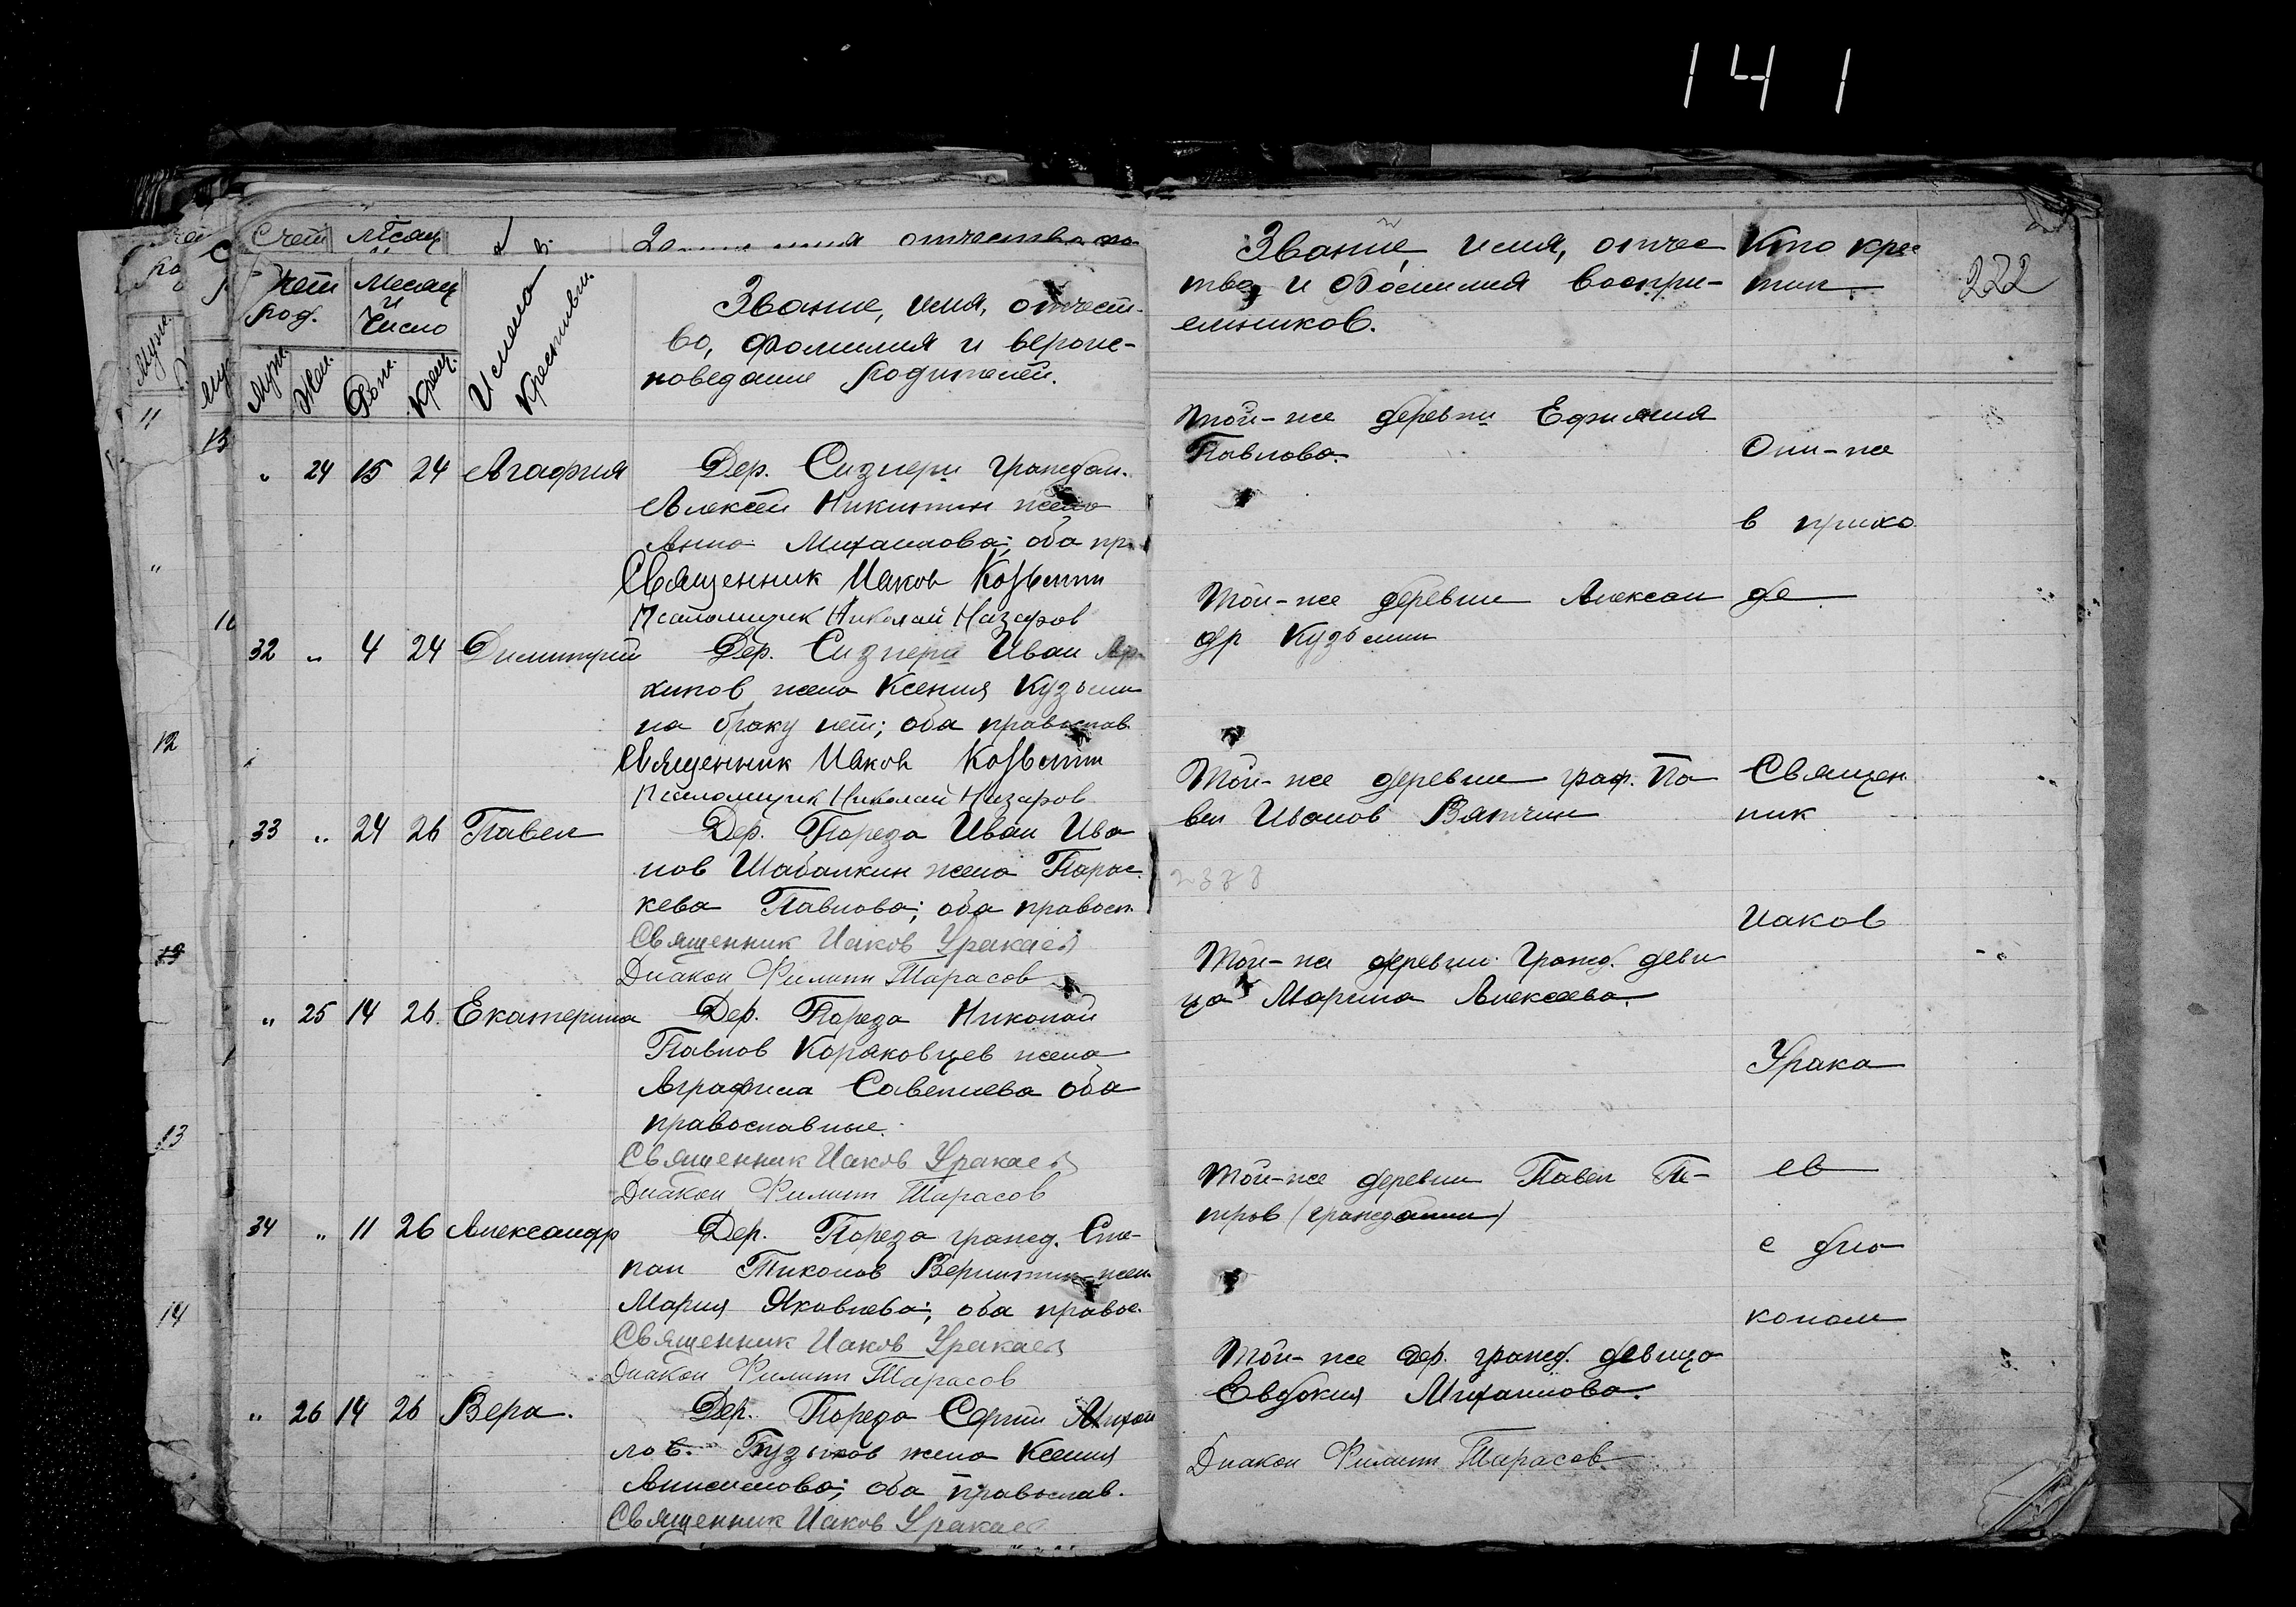 141
222
Счет Месяц
отчество
Счет
род.
Месяц
и
Число
Муж.
Жен.
Рож.
Крещ.
Имена
Крестивш.
Звание, имя, отчест-
во, фамилия и верои-
поведание Родителей.
Звание, имя, отчес
тво, и Фамилия воспри-
емников.
Кто кре
тил
" 24 15 24 Агафия
Дер. Сизнери граждан.
Алексей Никитин жена
Анна Михаилова; оба пр.
Священник Иаков
Псаломщик Николай Назаров
той-же деревни Ефимия
Павлова.
Они-же
в прихо
де
32 " 4 24 Димитрий
Дер. Сизнери Иван Ар
хипов жена Ксения Кузьми
на браку нет; оба православ.
Священник Иаков
Псаломщик Николай Назаров
Той-же деревни Алексан
др Кузьмин
33 " 24 26 Павел
Дер. Пореза Иван Ива
нов Шабалкин жена Парас
кева Павлова; оба правосл.
Священник Иаков Уракаев
Диакон Филипп Тарасов
Той-же деревни граж. Па
вел Иванов Вятчин
2378
Священ
ник
Иаков
" 25 14 26 Екатерина
Дер. Пореза Николай
Павлов Коряковцев жена
Аграфена Савельева оба
православные.
Священник Иаков Уракаев
Диакон Филипп Тарасов
Той-же деревни гражд. деви
ца Марина Алексеева.
Урака
ев
34 " 11 26 Александр
Дер. Пореза гражд. Сте-
пан Тихонов жен.
Мария Яковлева; оба правос.
Священник Иаков Уракаев
Диакон Филипп Тарасов
Той-же деревни Павел Пе-
тров (гражданин)
с диа
коном
" 26 14 26 Вера.
Дер. Пореза Сергий Михаи
лов. жена Ксения
Анисимова; оба православ.
Священник Иаков Уракаев
Той-же дер. гражд. девица
Евдокия Михаилова.
Диакон Филипп Тарасов